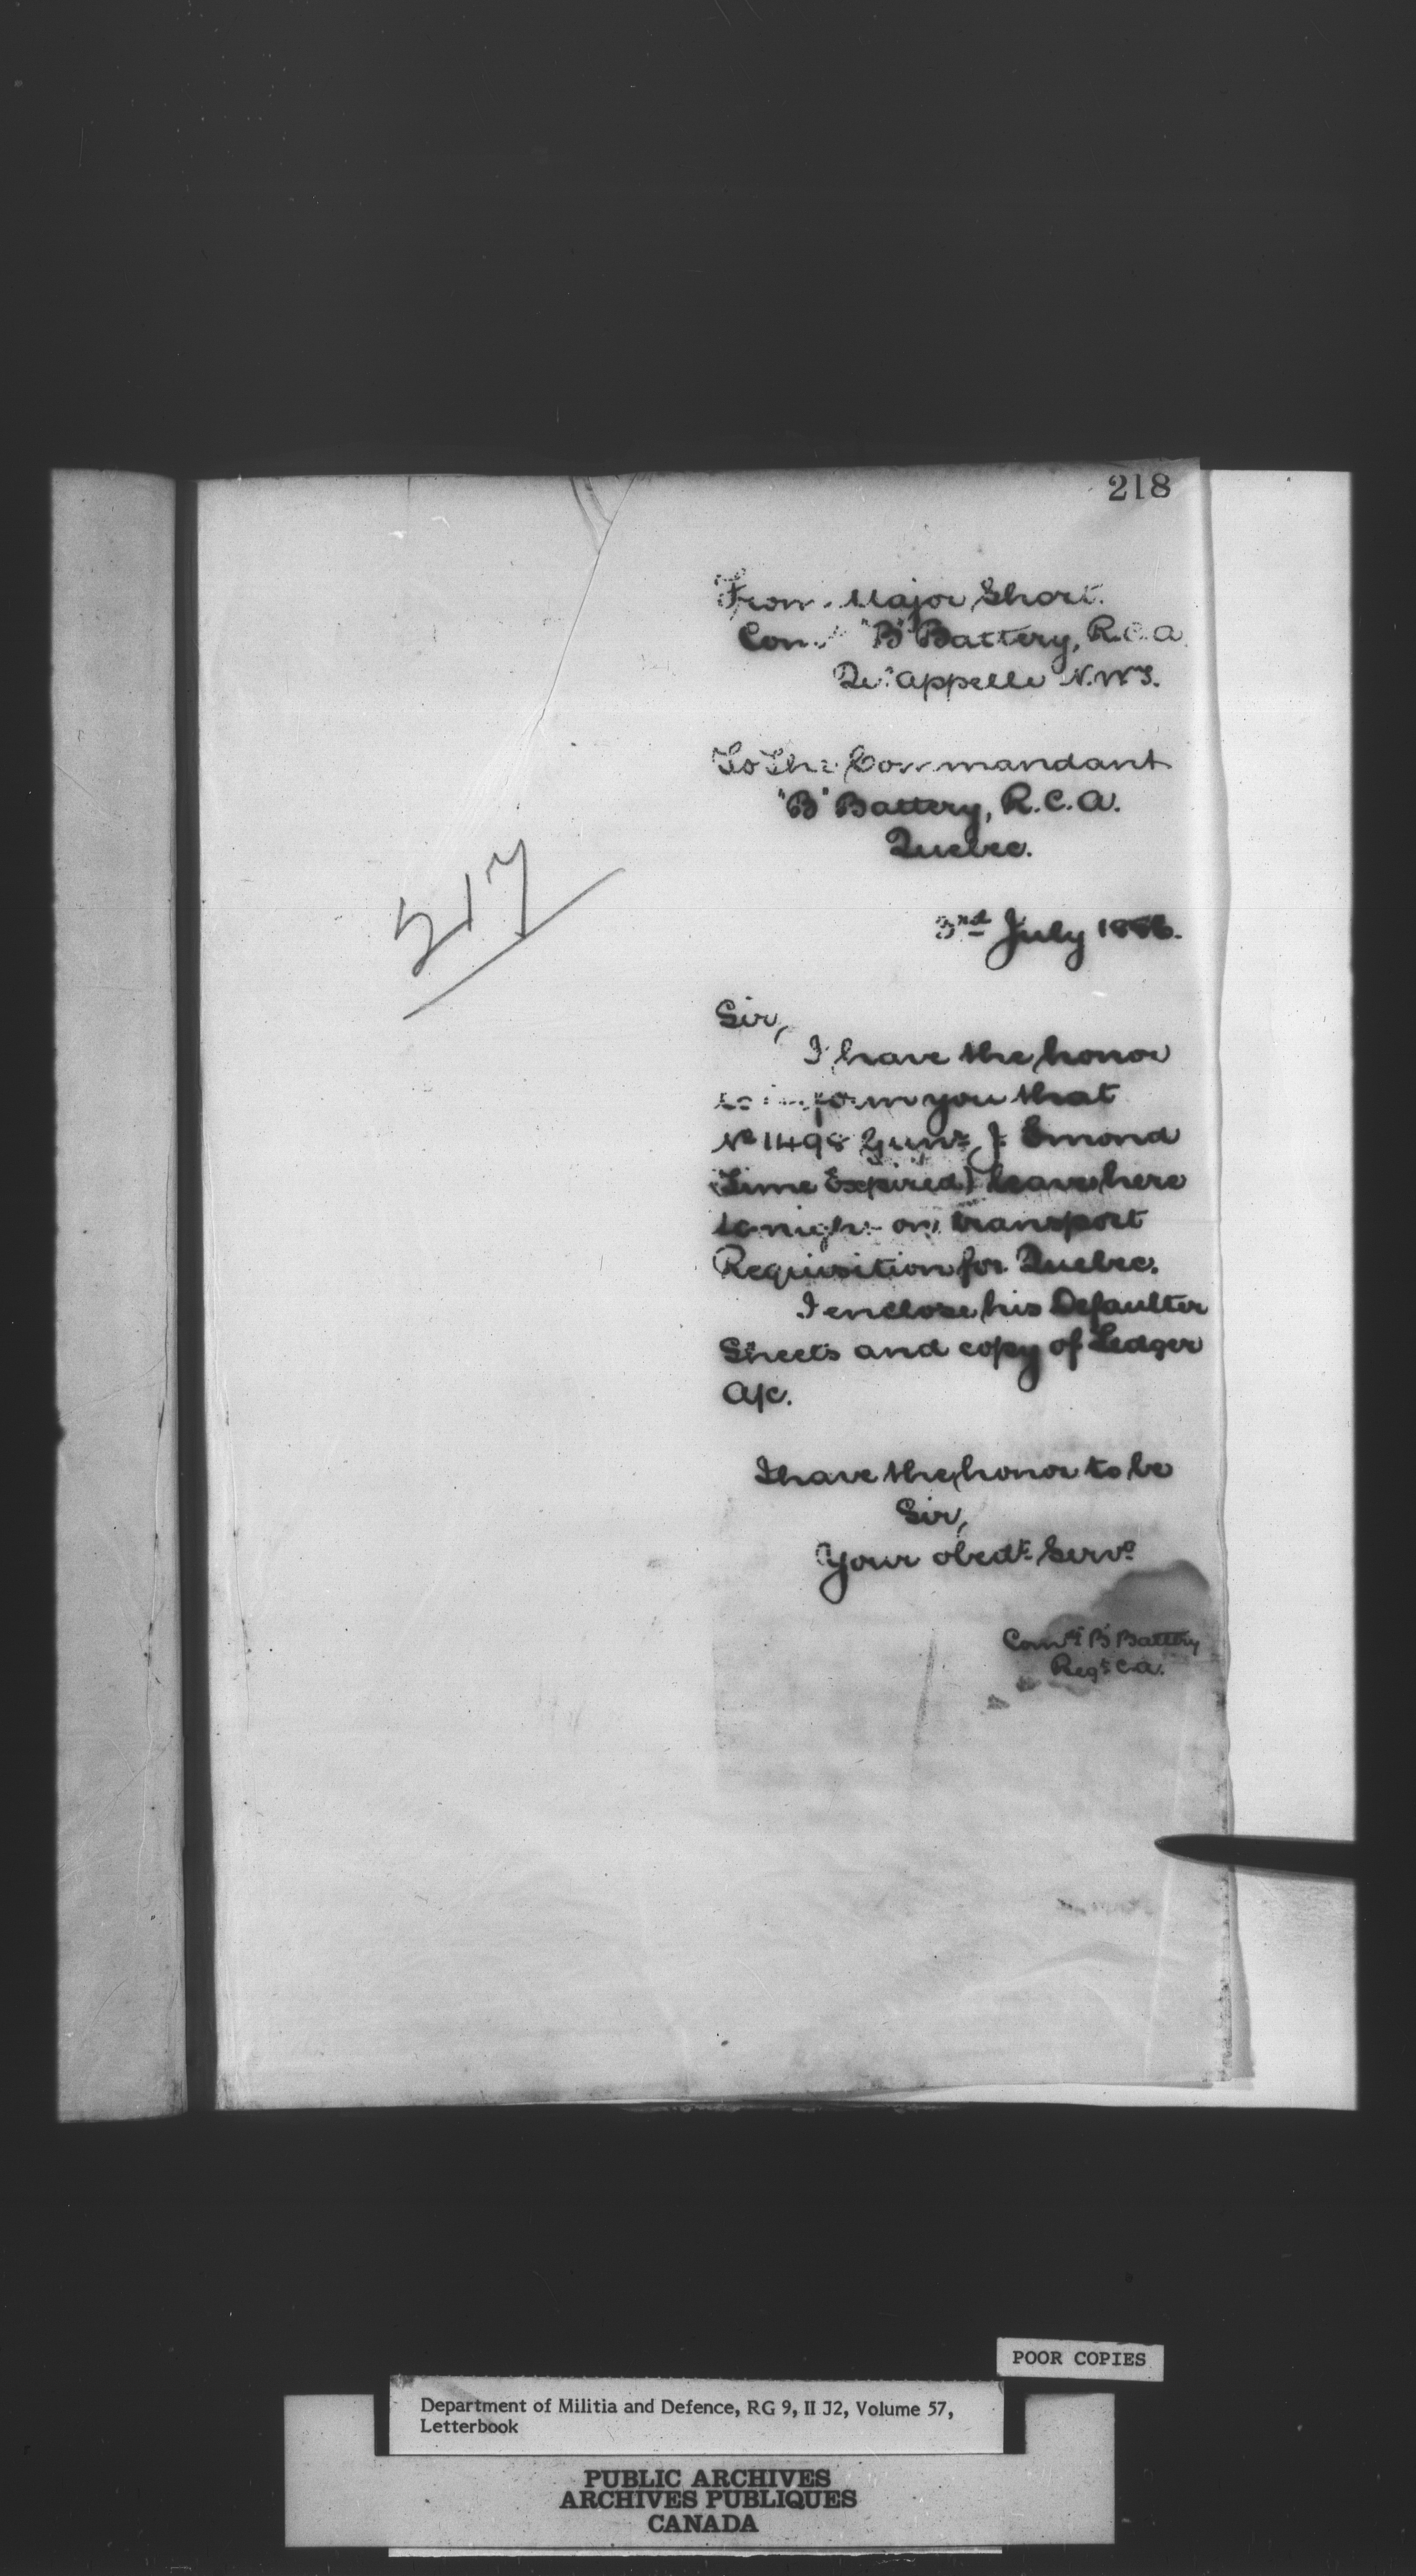 218
From Major Short.
Com. "B" Battery, R.C.A.
Qu'appelle N.W.T.
To The Commandant
"B" Battery, R.C.A.
Quebec.
217
3rd July 1886.
Sir,
I have the honor
to inform you that
No 1498 Gunr J. Emond
(Time Expired) leaves here
tonight on transport
Requisition for Quebec.
I enclose his Defaulter
Sheets and copy of Ledger
A/c.
I have the honor to be
Sir,
Your obedt Servt
Comdt "B" Battery
Regt C.A.
POOR COPIES
Department of Militia and Defence, RG 9, II J2, Volume 57,
Letterbook
PUBLIC ARCHIVES
ARCHIVES PUBLIQUES
CANADA